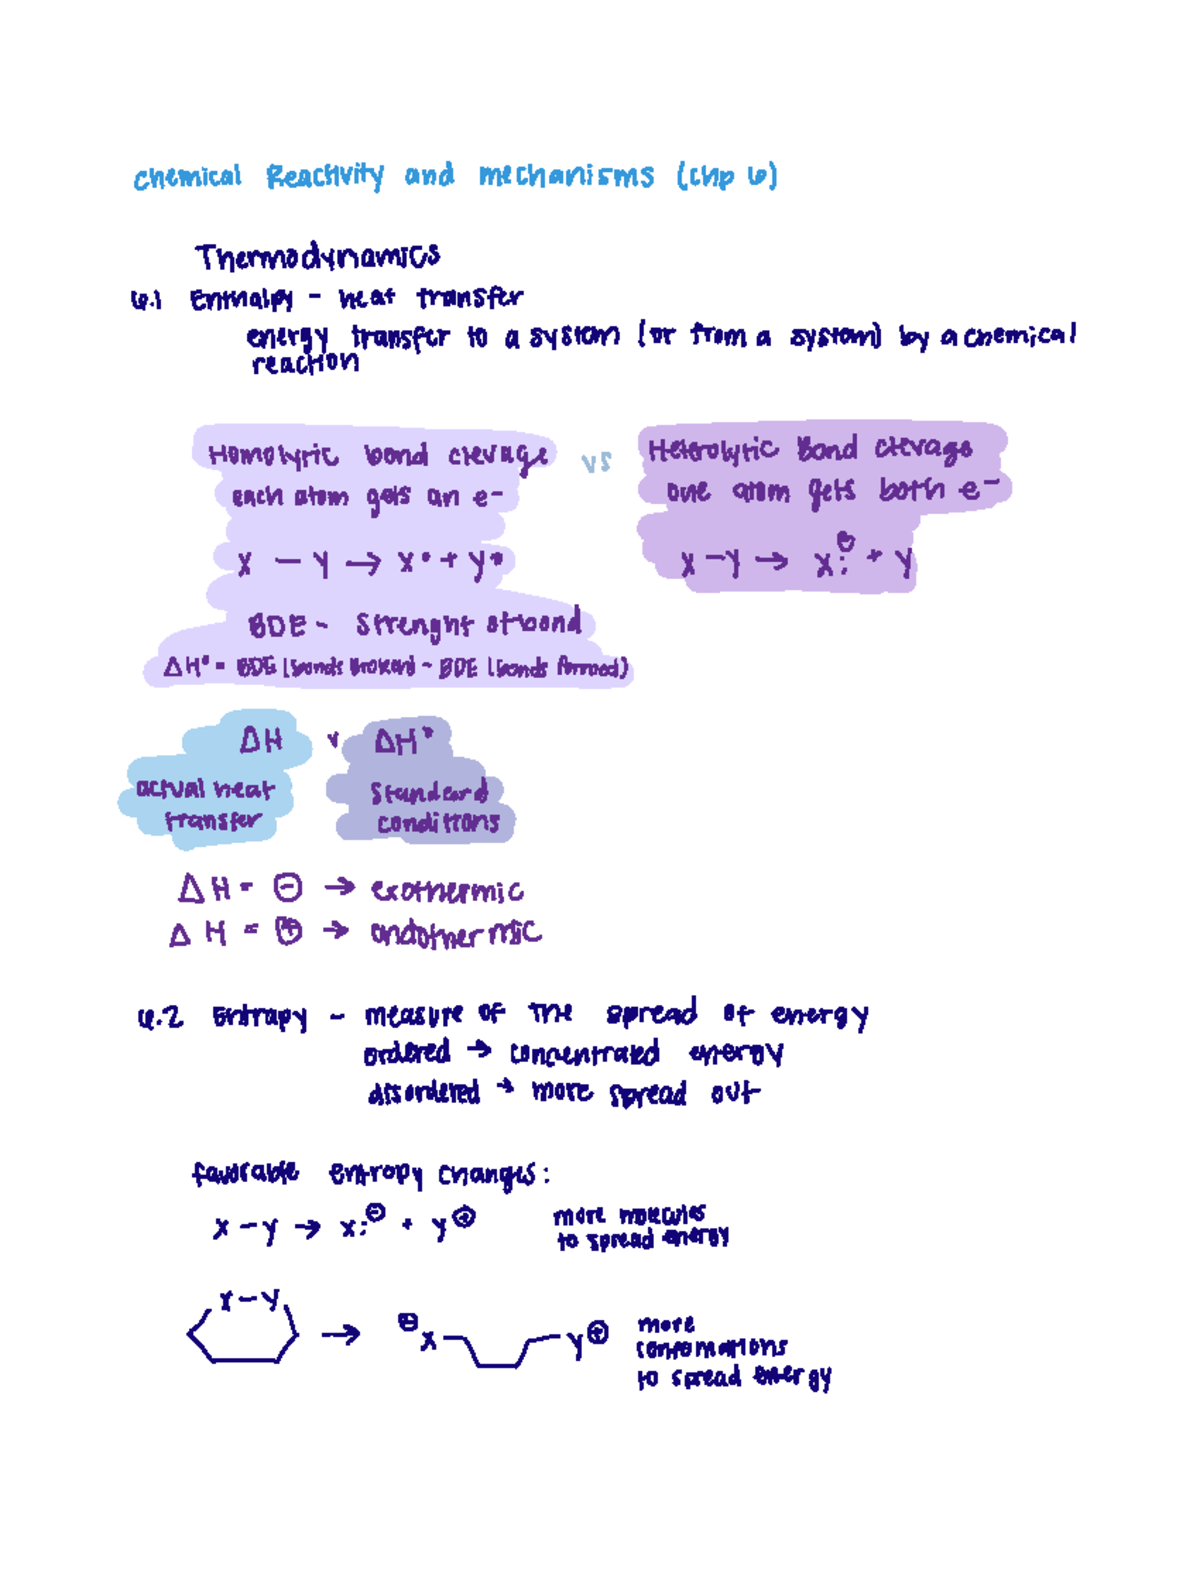 chemical Reactivity and mechanisms (chp 6)
Thermodynamics
6.1 Enthalpy - heat transfer
energy transfer to a system (or from a system) by a chemical
reaction
Homolytic bond clevage vs Heterolytic Bond clevage
each atom gets an e⁻ one atom gets both e⁻
X — Y → X• + Y• X — Y → X:⊖ + Y
BDE - Strenght of bond
ΔH° = BDE (bonds broken) - BDE (bonds formed)
ΔH v ΔH°
actual heat Standard
transfer conditions
ΔH = ⊖ → exothermic
ΔH = ⊕ → endothermic
6.2 Entropy - measure of the spread of energy
ordered → concentrated energy
disordered → more spread out
favorable entropy changes:
X — Y → X:⊖ + Y⊕ more molecules
to spread energy
X — Y → ⊖X Y⊕ more
conformations
to spread energy